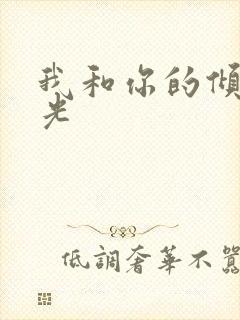 我和你的傾
光
低調奢華不囂